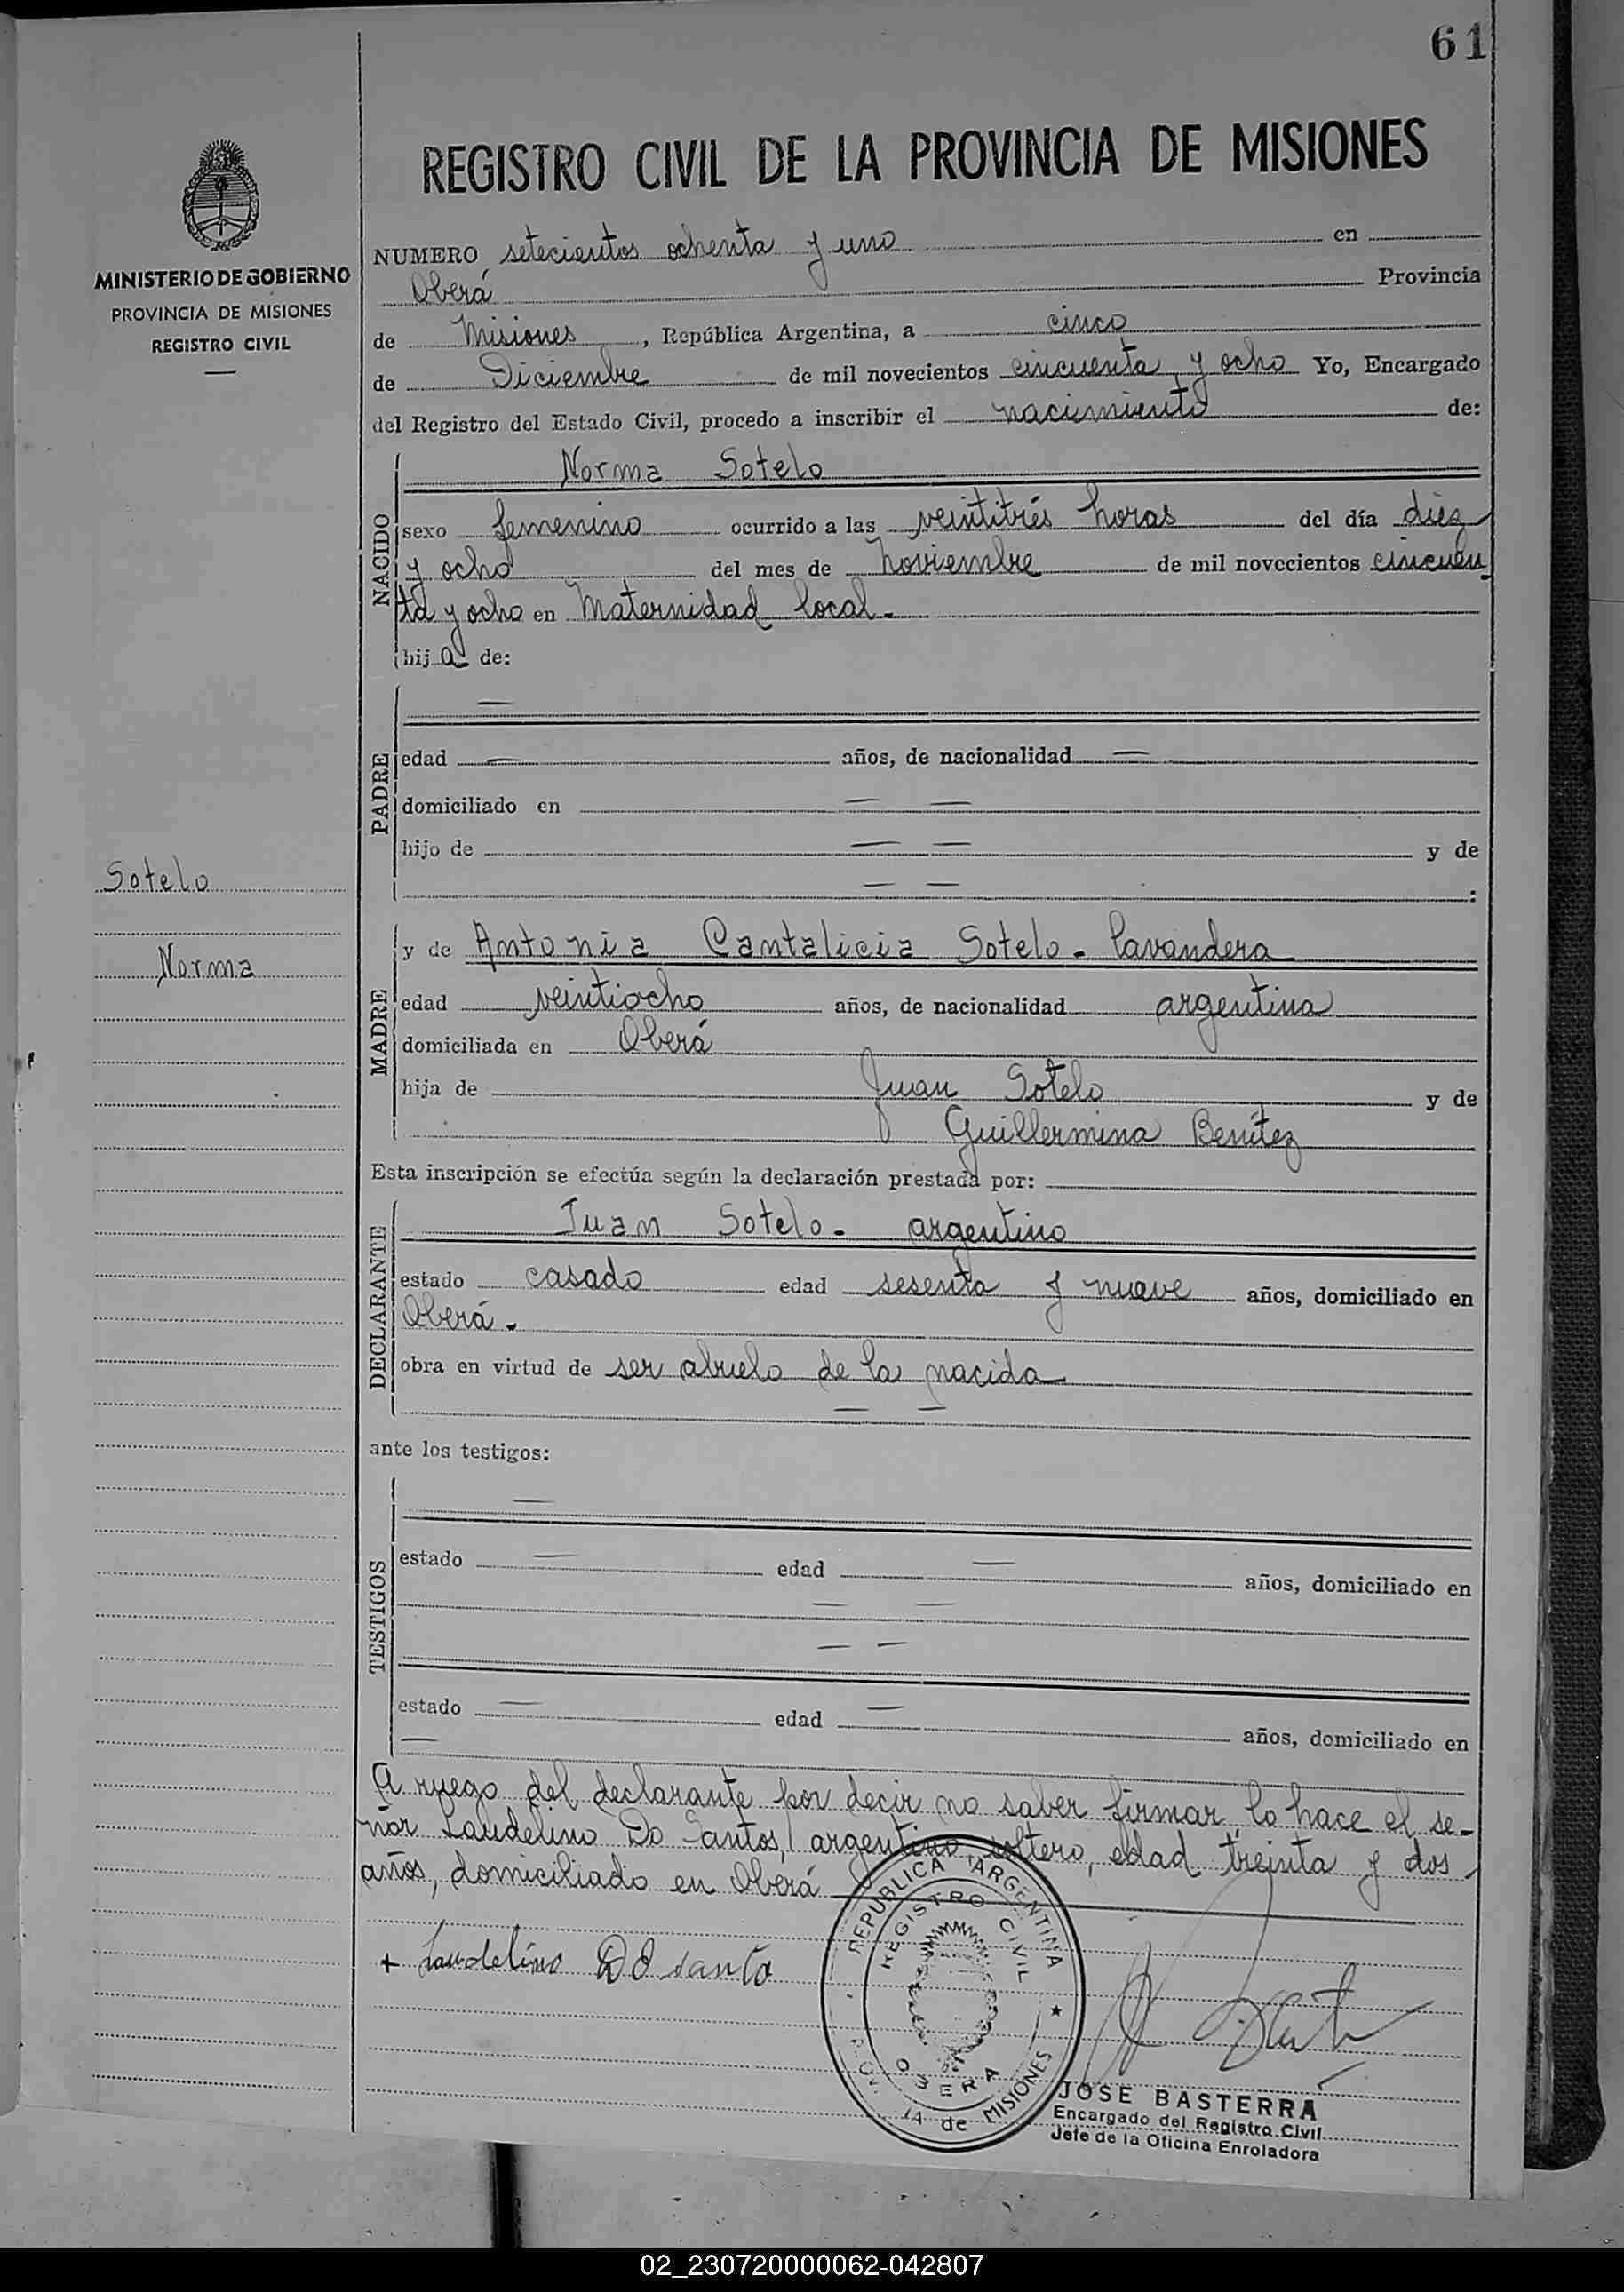 61
REGISTRO CIVIL DE LA PROVINCIA DE MISIONES
MINISTERIO DE GOBIERNO
PROVINCIA DE MISIONES
REGISTRO CIVIL
NUMERO setecientos ochenta y uno en
Oberá Provincia
de Misiones, República Argentina, a cinco
de Diciembre de mil novecientos cincuenta y ocho Yo, Encargado
del Registro del Estado Civil, procedo a inscribir el nacimiento de:
NACIDO
Norma Sotelo
sexo femenino ocurrido a las veintitrés horas del día diez
y ocho del mes de Noviembre de mil novecientos cincuen
ta y ocho en Maternidad local.
hija de:
PADRE
—
edad — años, de nacionalidad —
domiciliado en — —
hijo de — — y de
— — :
Sotelo
Norma
MADRE
y de Antonia Cantalicia Sotelo - lavandera
edad veintiocho años, de nacionalidad argentina
domiciliada en Oberá
hija de Juan Sotelo y de
Guillermina Benítez
Esta inscripción se efectúa según la declaración prestada por:
DECLARANTE
Juan Sotelo - argentino
estado casado edad sesenta y nueve años, domiciliado en
Oberá.
obra en virtud de ser abuelo de la nacida
— —
ante los testigos:
TESTIGOS
—
estado — edad — años, domiciliado en
— —
— —
estado — edad — años, domiciliado en
—
A ruego del declarante por decir no saber firmar, lo hace el se-
ñor Laudelino Do Santos, argentino, soltero, edad treinta y dos
años, domiciliado en Oberá
+ Laudelino DO santo
REPUBLICA ARGENTINA
REGISTRO CIVIL
OBERA
de MISIONES
JOSE BASTERRA
Encargado del Registro Civil
Jefe de la Oficina Enroladora
02_230720000062-042807